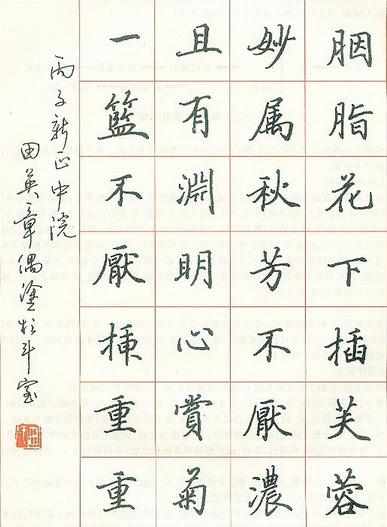 胭脂花下插芙蓉
妙属秋芳不厭濃
且有淵明心賞菊
一籃不厭挿重重
丙子新正中浣
田英章偶塗於斗室